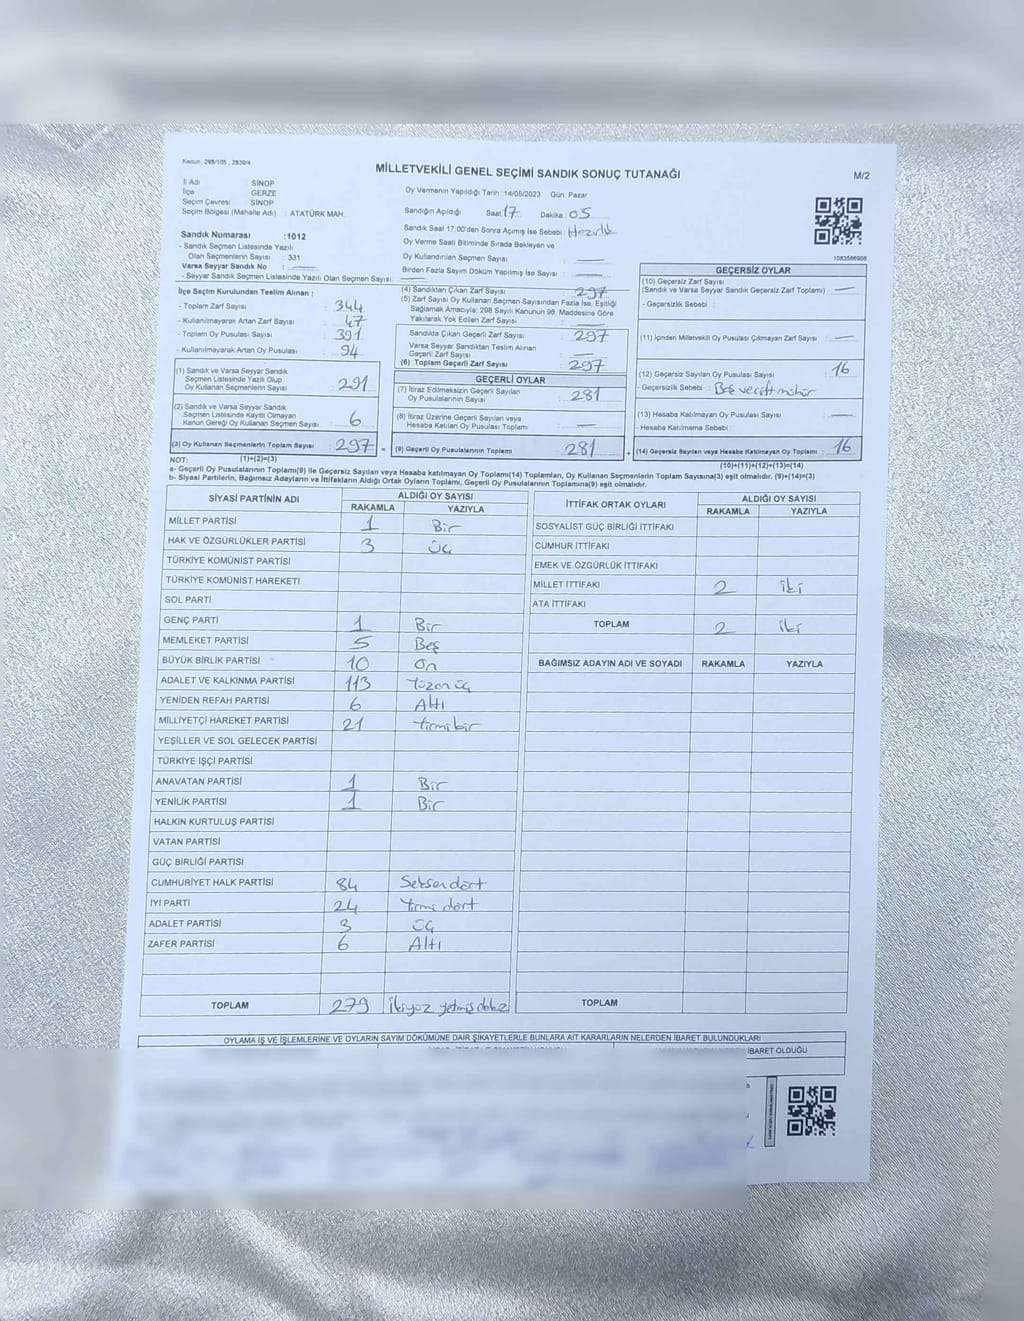 Kanun, 298/105 , 2839/4
MİLLETVEKİLİ GENEL SEÇİMİ SANDIK SONUÇ TUTANAĞI
M/2
İl Adı : SİNOP
İlçe : GERZE
Seçim Çevresi : SİNOP
Seçim Bölgesi (Mahalle Adı) : ATATÜRK MAH.
Sandık Numarası :1012
- Sandık Seçmen Listesinde Yazılı
Olan Seçmenlerin Sayısı : 331
Varsa Seyyar Sandık No
- Seyyar Sandık Seçmen Listesinde Yazılı Olan Seçmen Sayısı:
Oy Vermenin Yapıldığı Tarih : 14/05/2023 Gün: Pazar
Sandığın Açıldığı Saat 17 Dakika : 05
Sandık Saat 17.00'den Sonra Açılmış İse Sebebi : Hazırlık
Oy Verme Saati Bitiminde Sırada Bekleyen ve
Oy Kullandırılan Seçmen Sayısı :
Birden Fazla Sayım Döküm Yapılmış İse Sayısı :
1083586906
İlçe Seçim Kurulundan Teslim Alınan ;
- Toplam Zarf Sayısı : 344
- Kullanılmayarak Artan Zarf Sayısı : 47
- Toplam Oy Pusulası Sayısı : 391
- Kullanılmayarak Artan Oy Pusulası : 94
(1) Sandık ve Varsa Seyyar Sandık
Seçmen Listesinde Yazılı Olup
Oy Kullanan Seçmenlerin Sayısı : 291
(2) Sandık ve Varsa Seyyar Sandık
Seçmen Listesinde Kayıtlı Olmayan
Kanun Gereği Oy Kullanan Seçmen Sayısı : 6
(3) Oy Kullanan Seçmenlerin Toplam Sayısı : 297
(1)+(2)=(3)
(4) Sandıktan Çıkan Zarf Sayısı : 297
(5) Zarf Sayısı Oy Kullanan Seçmen Sayısından Fazla İse, Eşitliği
Sağlamak Amacıyla; 298 Sayılı Kanunun 98. Maddesine Göre
Yakılarak Yok Edilen Zarf Sayısı :
Sandıkta Çıkan Geçerli Zarf Sayısı : 297
Varsa Seyyar Sandıktan Teslim Alınan
Geçerli Zarf Sayısı :
(6) Toplam Geçerli Zarf Sayısı : 297
GEÇERLİ OYLAR
(7) İtiraz Edilmeksizin Geçerli Sayılan
Oy Pusulalarının Sayısı : 281
(8) İtiraz Üzerine Geçerli Sayılan veya
Hesaba Katılan Oy Pusulası Toplamı :
= (9) Geçerli Oy Pusulalarının Toplamı : 281 +
GEÇERSİZ OYLAR
(10) Geçersiz Zarf Sayısı
(Sandık ve Varsa Seyyar Sandık Geçersiz Zarf Toplamı) :
- Geçersizlik Sebebi :
(11) İçinden Milletvekili Oy Pusulası Çıkmayan Zarf Sayısı :
(12) Geçersiz Sayılan Oy Pusulası Sayısı : 16
- Geçersizlik Sebebi : Boş ve çift mühür
(13) Hesaba Katılmayan Oy Pusulası Sayısı :
- Hesaba Katılmama Sebebi :
(14) Geçersiz Sayılan veya Hesaba Katılmayan Oy Toplamı : 16
(10)+(11)+(12)+(13)=(14)
NOT:
a- Geçerli Oy Pusulalarının Toplamı(9) ile Geçersiz Sayılan veya Hesaba katılmayan Oy Toplamı(14) Toplamları, Oy Kullanan Seçmenlerin Toplam Sayısına(3) eşit olmalıdır. (9)+(14)=(3)
b- Siyasi Partilerin, Bağımsız Adayların ve İttifakların Aldığı Ortak Oyların Toplamı, Geçerli Oy Pusulalarının Toplamına(9) eşit olmalıdır.
SİYASİ PARTİNİN ADI ALDIĞI OY SAYISI
RAKAMLA YAZIYLA
MİLLET PARTİSİ 1 Bir
HAK VE ÖZGÜRLÜKLER PARTİSİ 3 üç
TÜRKİYE KOMÜNİST PARTİSİ
TÜRKİYE KOMÜNİST HAREKETİ
SOL PARTİ
GENÇ PARTİ 1 Bir
MEMLEKET PARTİSİ 5 Beş
BÜYÜK BİRLİK PARTİSİ 10 On
ADALET VE KALKINMA PARTİSİ 113 Yüzonüç
YENİDEN REFAH PARTİSİ 6 Altı
MİLLİYETÇİ HAREKET PARTİSİ 21 Yirmi bir
YEŞİLLER VE SOL GELECEK PARTİSİ
TÜRKİYE İŞÇİ PARTİSİ
ANAVATAN PARTİSİ 1 Bir
YENİLİK PARTİSİ 1 Bir
HALKIN KURTULUŞ PARTİSİ
VATAN PARTİSİ
GÜÇ BİRLİĞİ PARTİSİ
CUMHURİYET HALK PARTİSİ 84 Seksen dört
İYİ PARTİ 24 Yirmi dört
ADALET PARTİSİ 3 Üç
ZAFER PARTİSİ 6 Altı
TOPLAM 279 İkiyüz yetmiş dokuz
İTTİFAK ORTAK OYLARI ALDIĞI OY SAYISI
RAKAMLA YAZIYLA
SOSYALİST GÜÇ BİRLİĞİ İTTİFAKI
CUMHUR İTTİFAKI
EMEK VE ÖZGÜRLÜK İTTİFAKI
MİLLET İTTİFAKI 2 İki
ATA İTTİFAKI
TOPLAM 2 İki
BAĞIMSIZ ADAYIN ADI VE SOYADI RAKAMLA YAZIYLA
TOPLAM
OYLAMA İŞ VE İŞLEMLERİNE VE OYLARIN SAYIM DÖKÜMÜNE DAİR ŞİKAYETLERLE BUNLARA AİT KARARLARIN NELERDEN İBARET BULUNDUKLARI
İBARET OLDUĞU